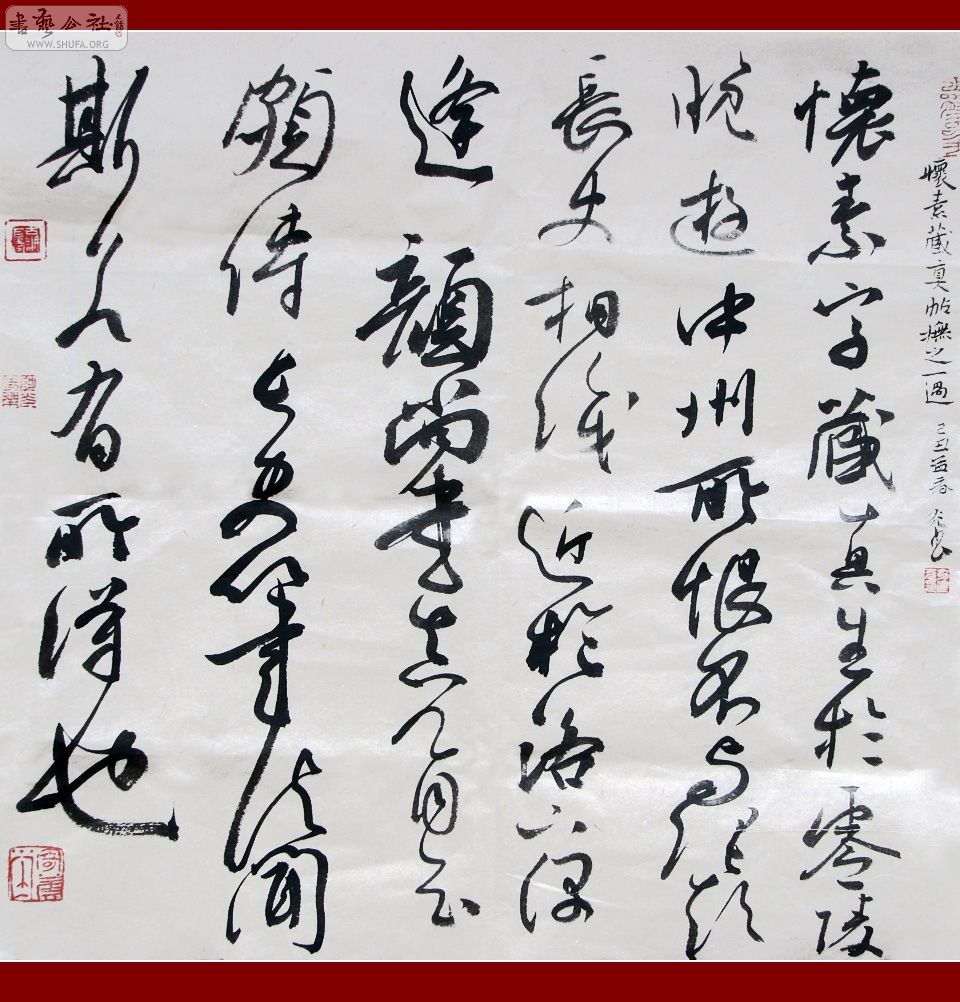 書藝公社
WWW.SHUFA.ORG
懷素藏真帖橅之一過 己丑春
懷素字藏真生於零陵
晚遊中州所恨不與張顛
長史相識近於洛下偶
逢顏尚書真卿自云
頗傳長史筆法聞
斯有所得也